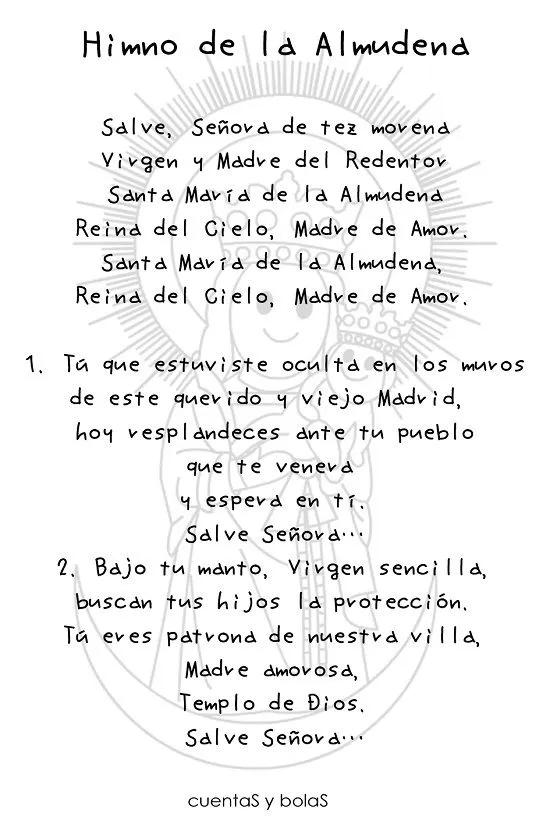 Himno de la Almudena
Salve, Señora de tez morena
Virgen y Madre del Redentor
Santa María de la Almudena
Reina del Cielo, Madre de Amor.
Santa María de la Almudena,
Reina del Cielo, Madre de Amor.
1. Tú que estuviste oculta en los muros
de este querido y viejo Madrid,
hoy resplandeces ante tu pueblo
que te venera
y espera en tí.
Salve Señora...
2. Bajo tu manto, Virgen sencilla,
buscan tus hijos la protección.
Tú eres patrona de nuestra villa,
Madre amorosa,
Templo de Dios.
Salve Señora...
cuentaS y bolaS